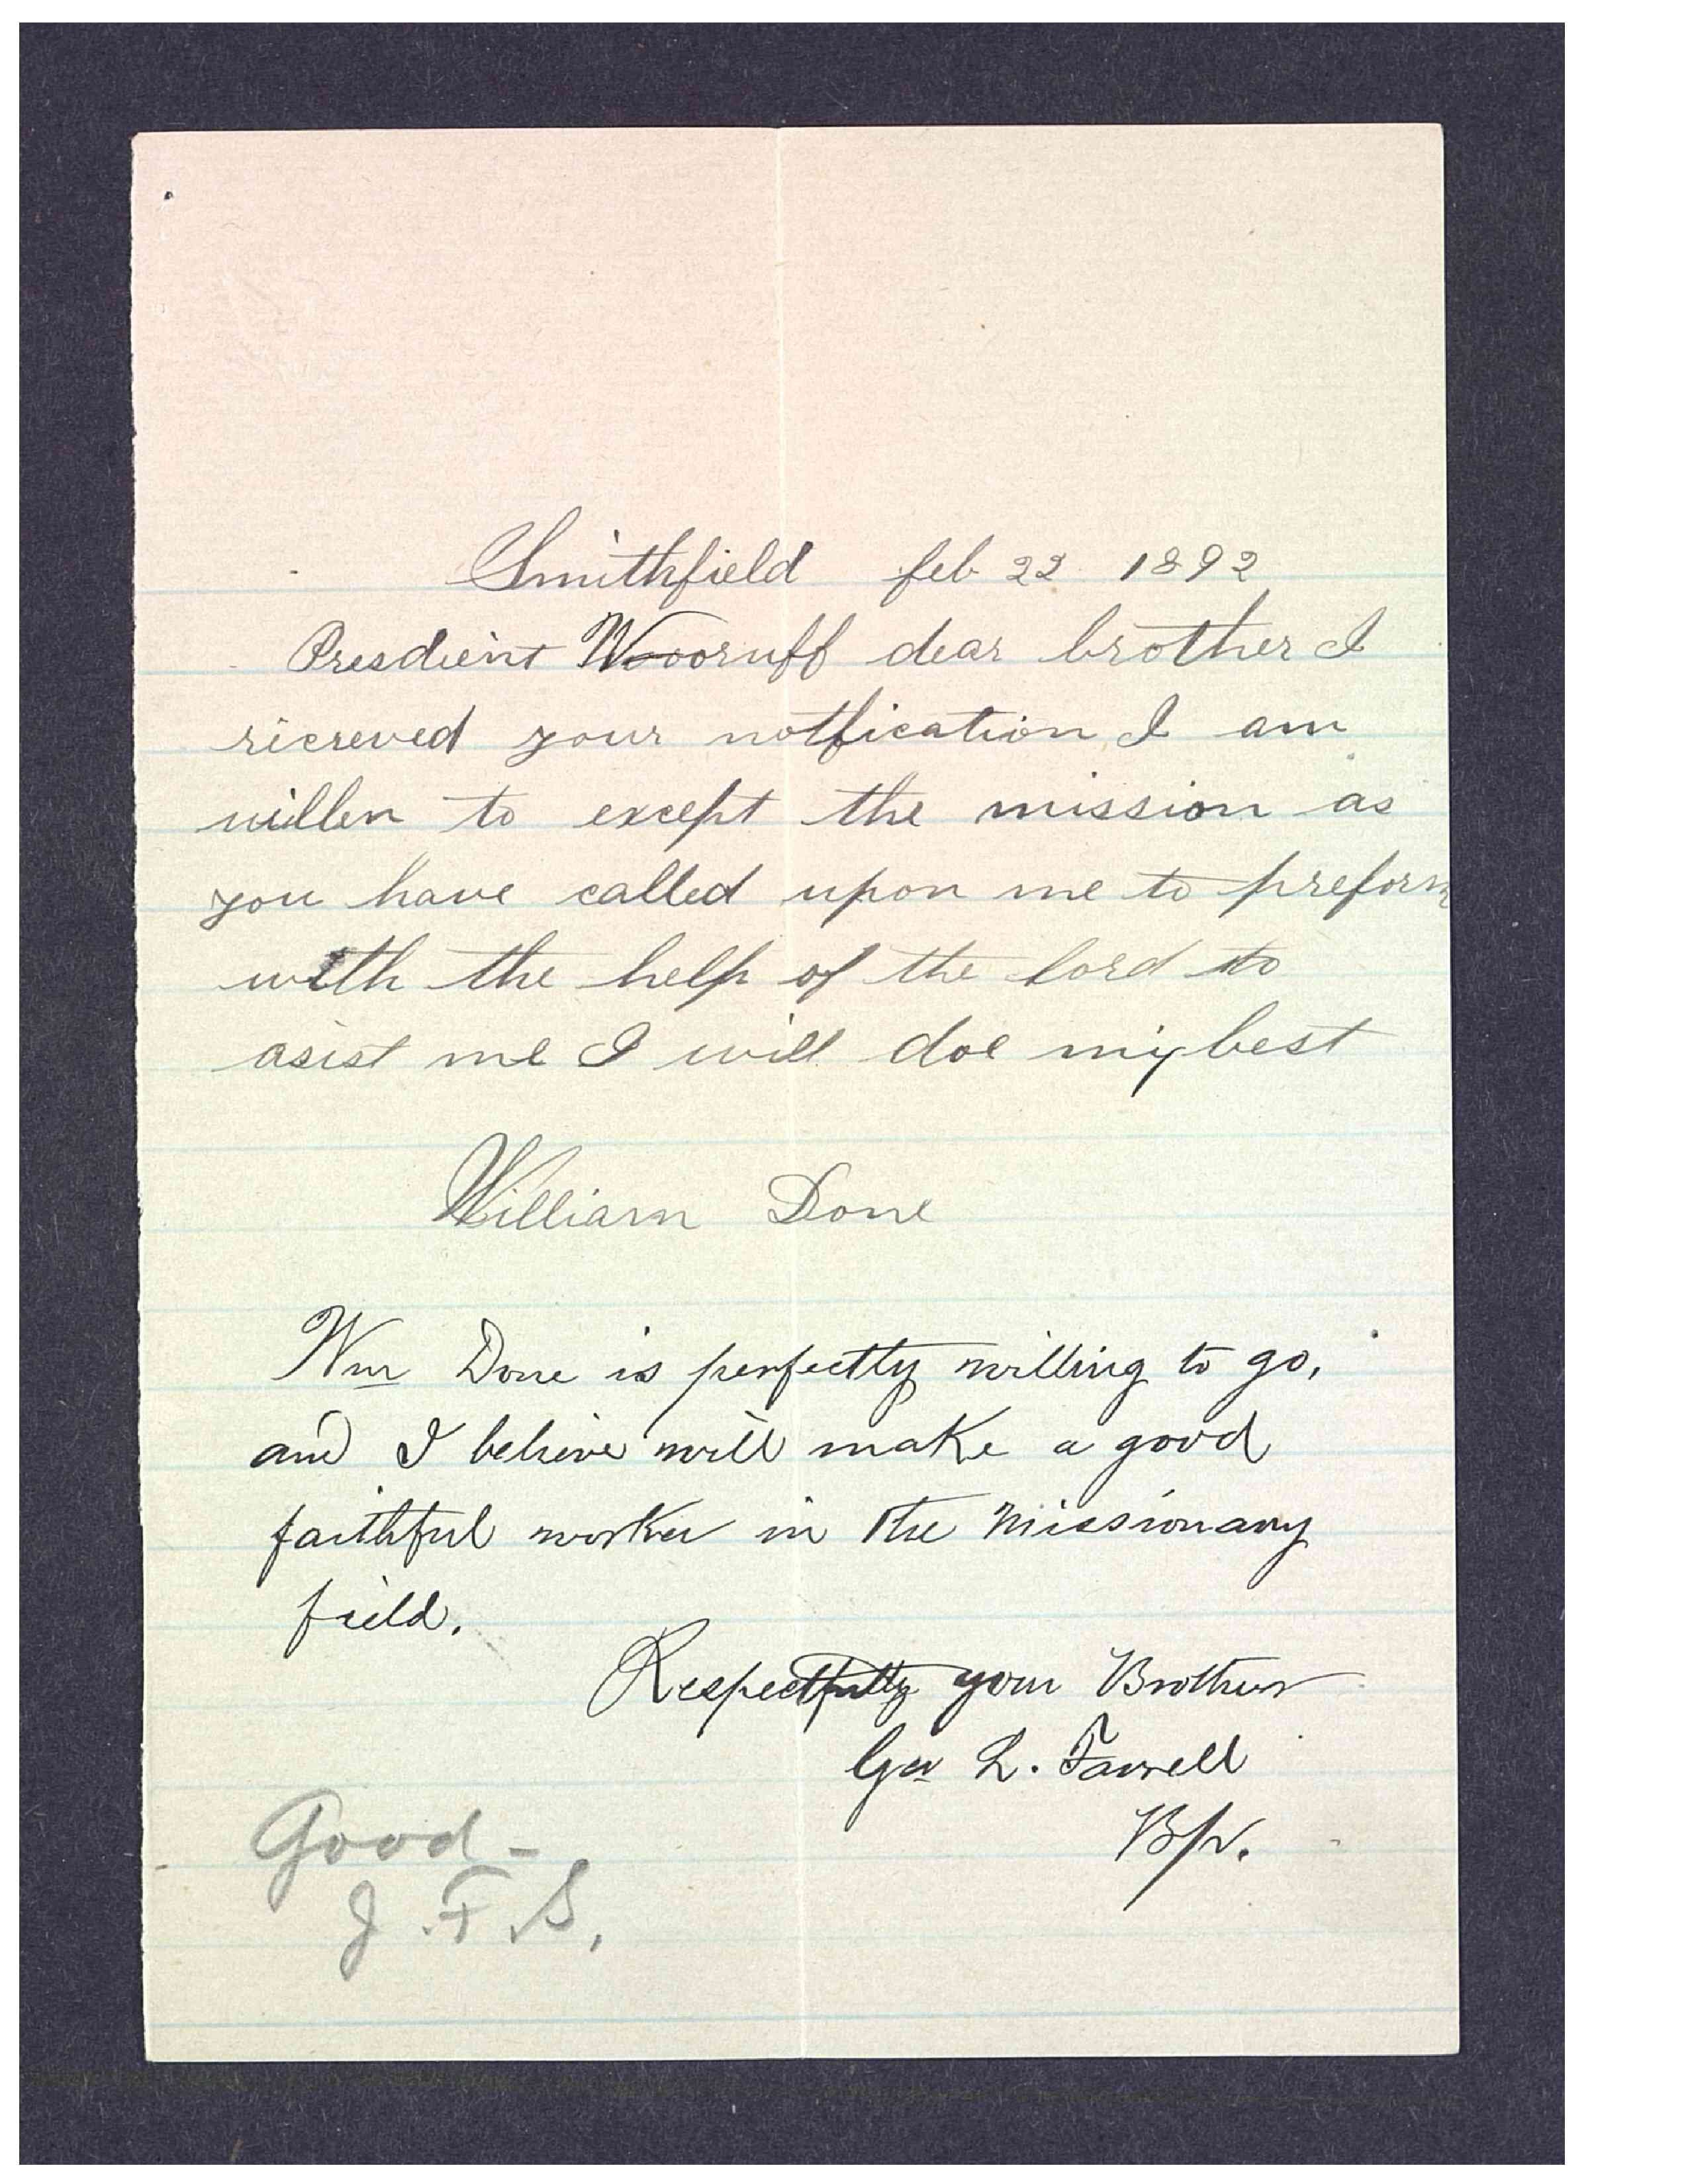 Smithfield feb 22 1892
Presdient Wooruff dear brother I
ricreved your notfication I am
willen to except the mission as
you have called upon me to preform
with the help of the lord to
asist me I will doe my best
William Done
Wm Done is perfectly willing to go,
and I believe will make a good
faithful worker in the missionary
field.
Respectfully your Brother
Geo L. Farrell
Bp.
Good -
J. F. S.